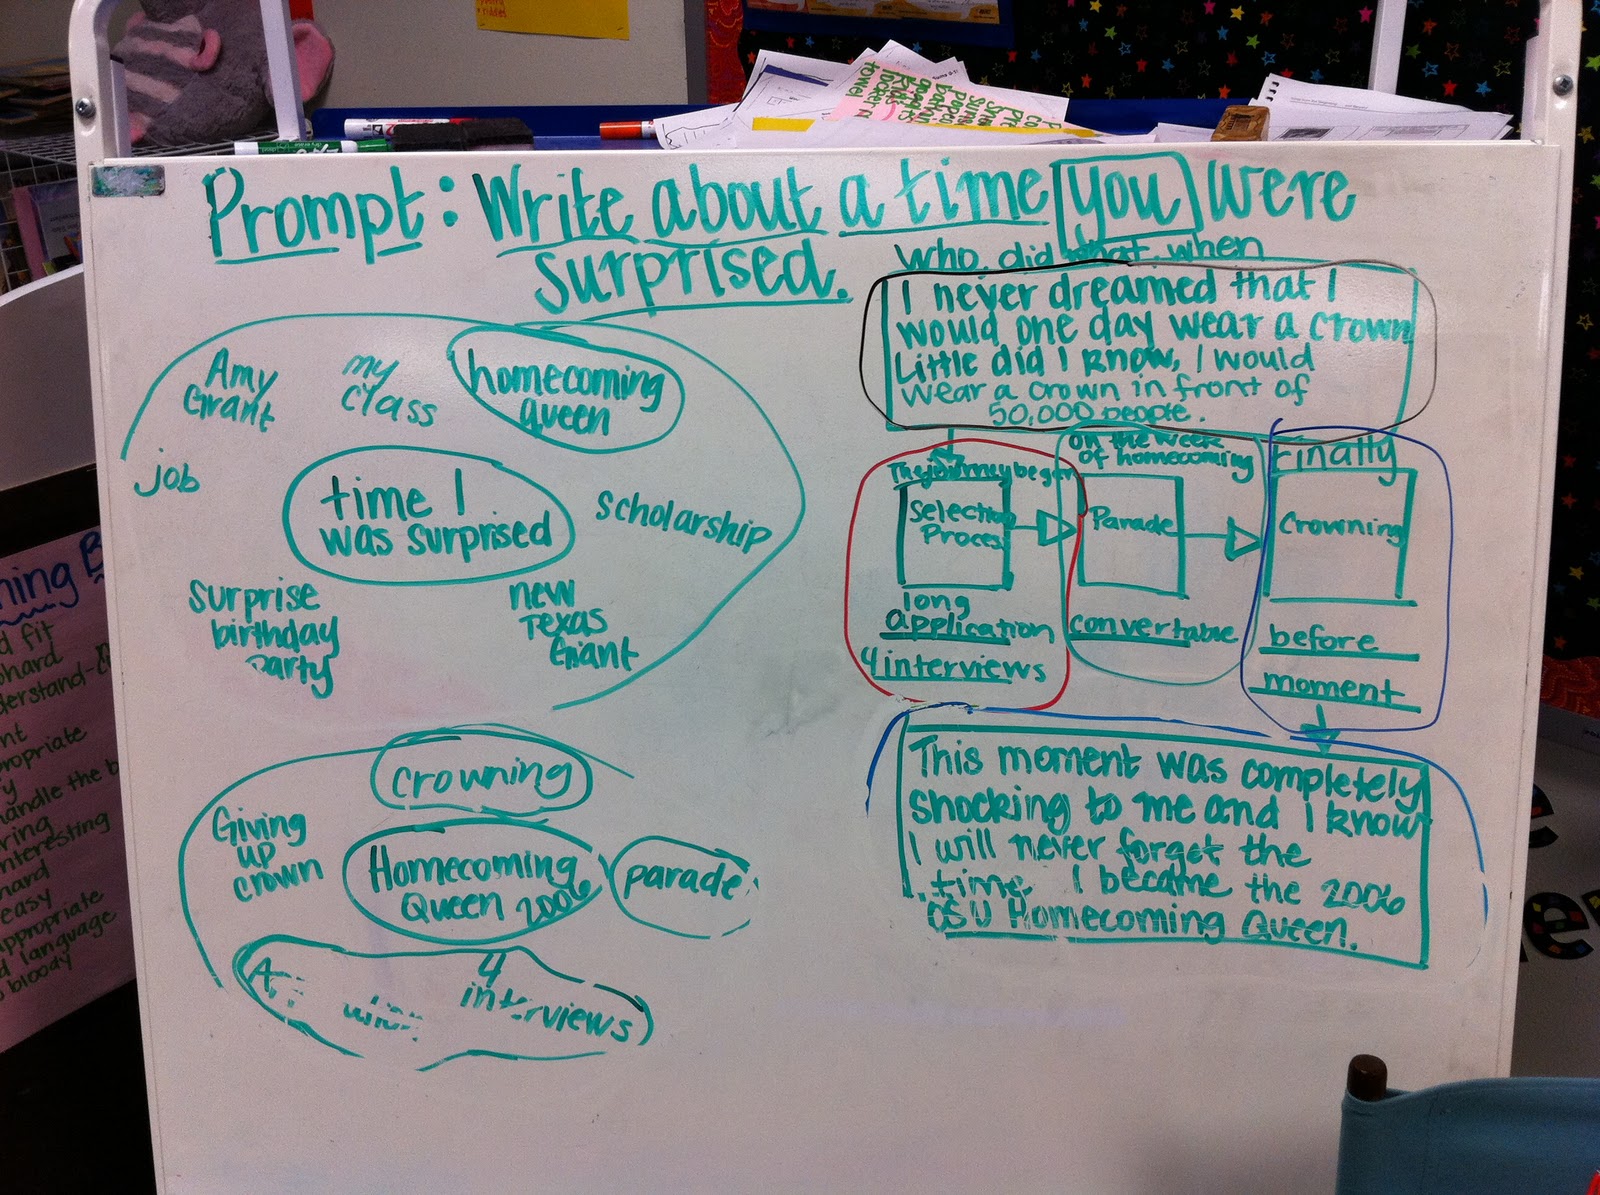 Prompt: Write about a time you were
surprised.
Amy
Grant
my
class
homecoming
queen
job
time I
was surprised
scholarship
surprise
birthday
party
new
Texas
Grant
crowning
Giving
up
crown
Homecoming
Queen 2006
parade
4
interviews
who, did what, when
I never dreamed that I
would one day wear a crown
Little did I know, I would
wear a crown in front of
50,000 people.
The journey began
Selection
Proces
long
application
4 interviews
on the week
of homecoming
Parade
convertable
Finally
Crowning
before
moment
This moment was completely
shocking to me and I know
I will never forget the
time I became the 2006
OSU Homecoming Queen.
ning
d fit
hard
derstand
propriate
handle the b
ring
nteresting
hard
easy
appropriate
d language
bloody